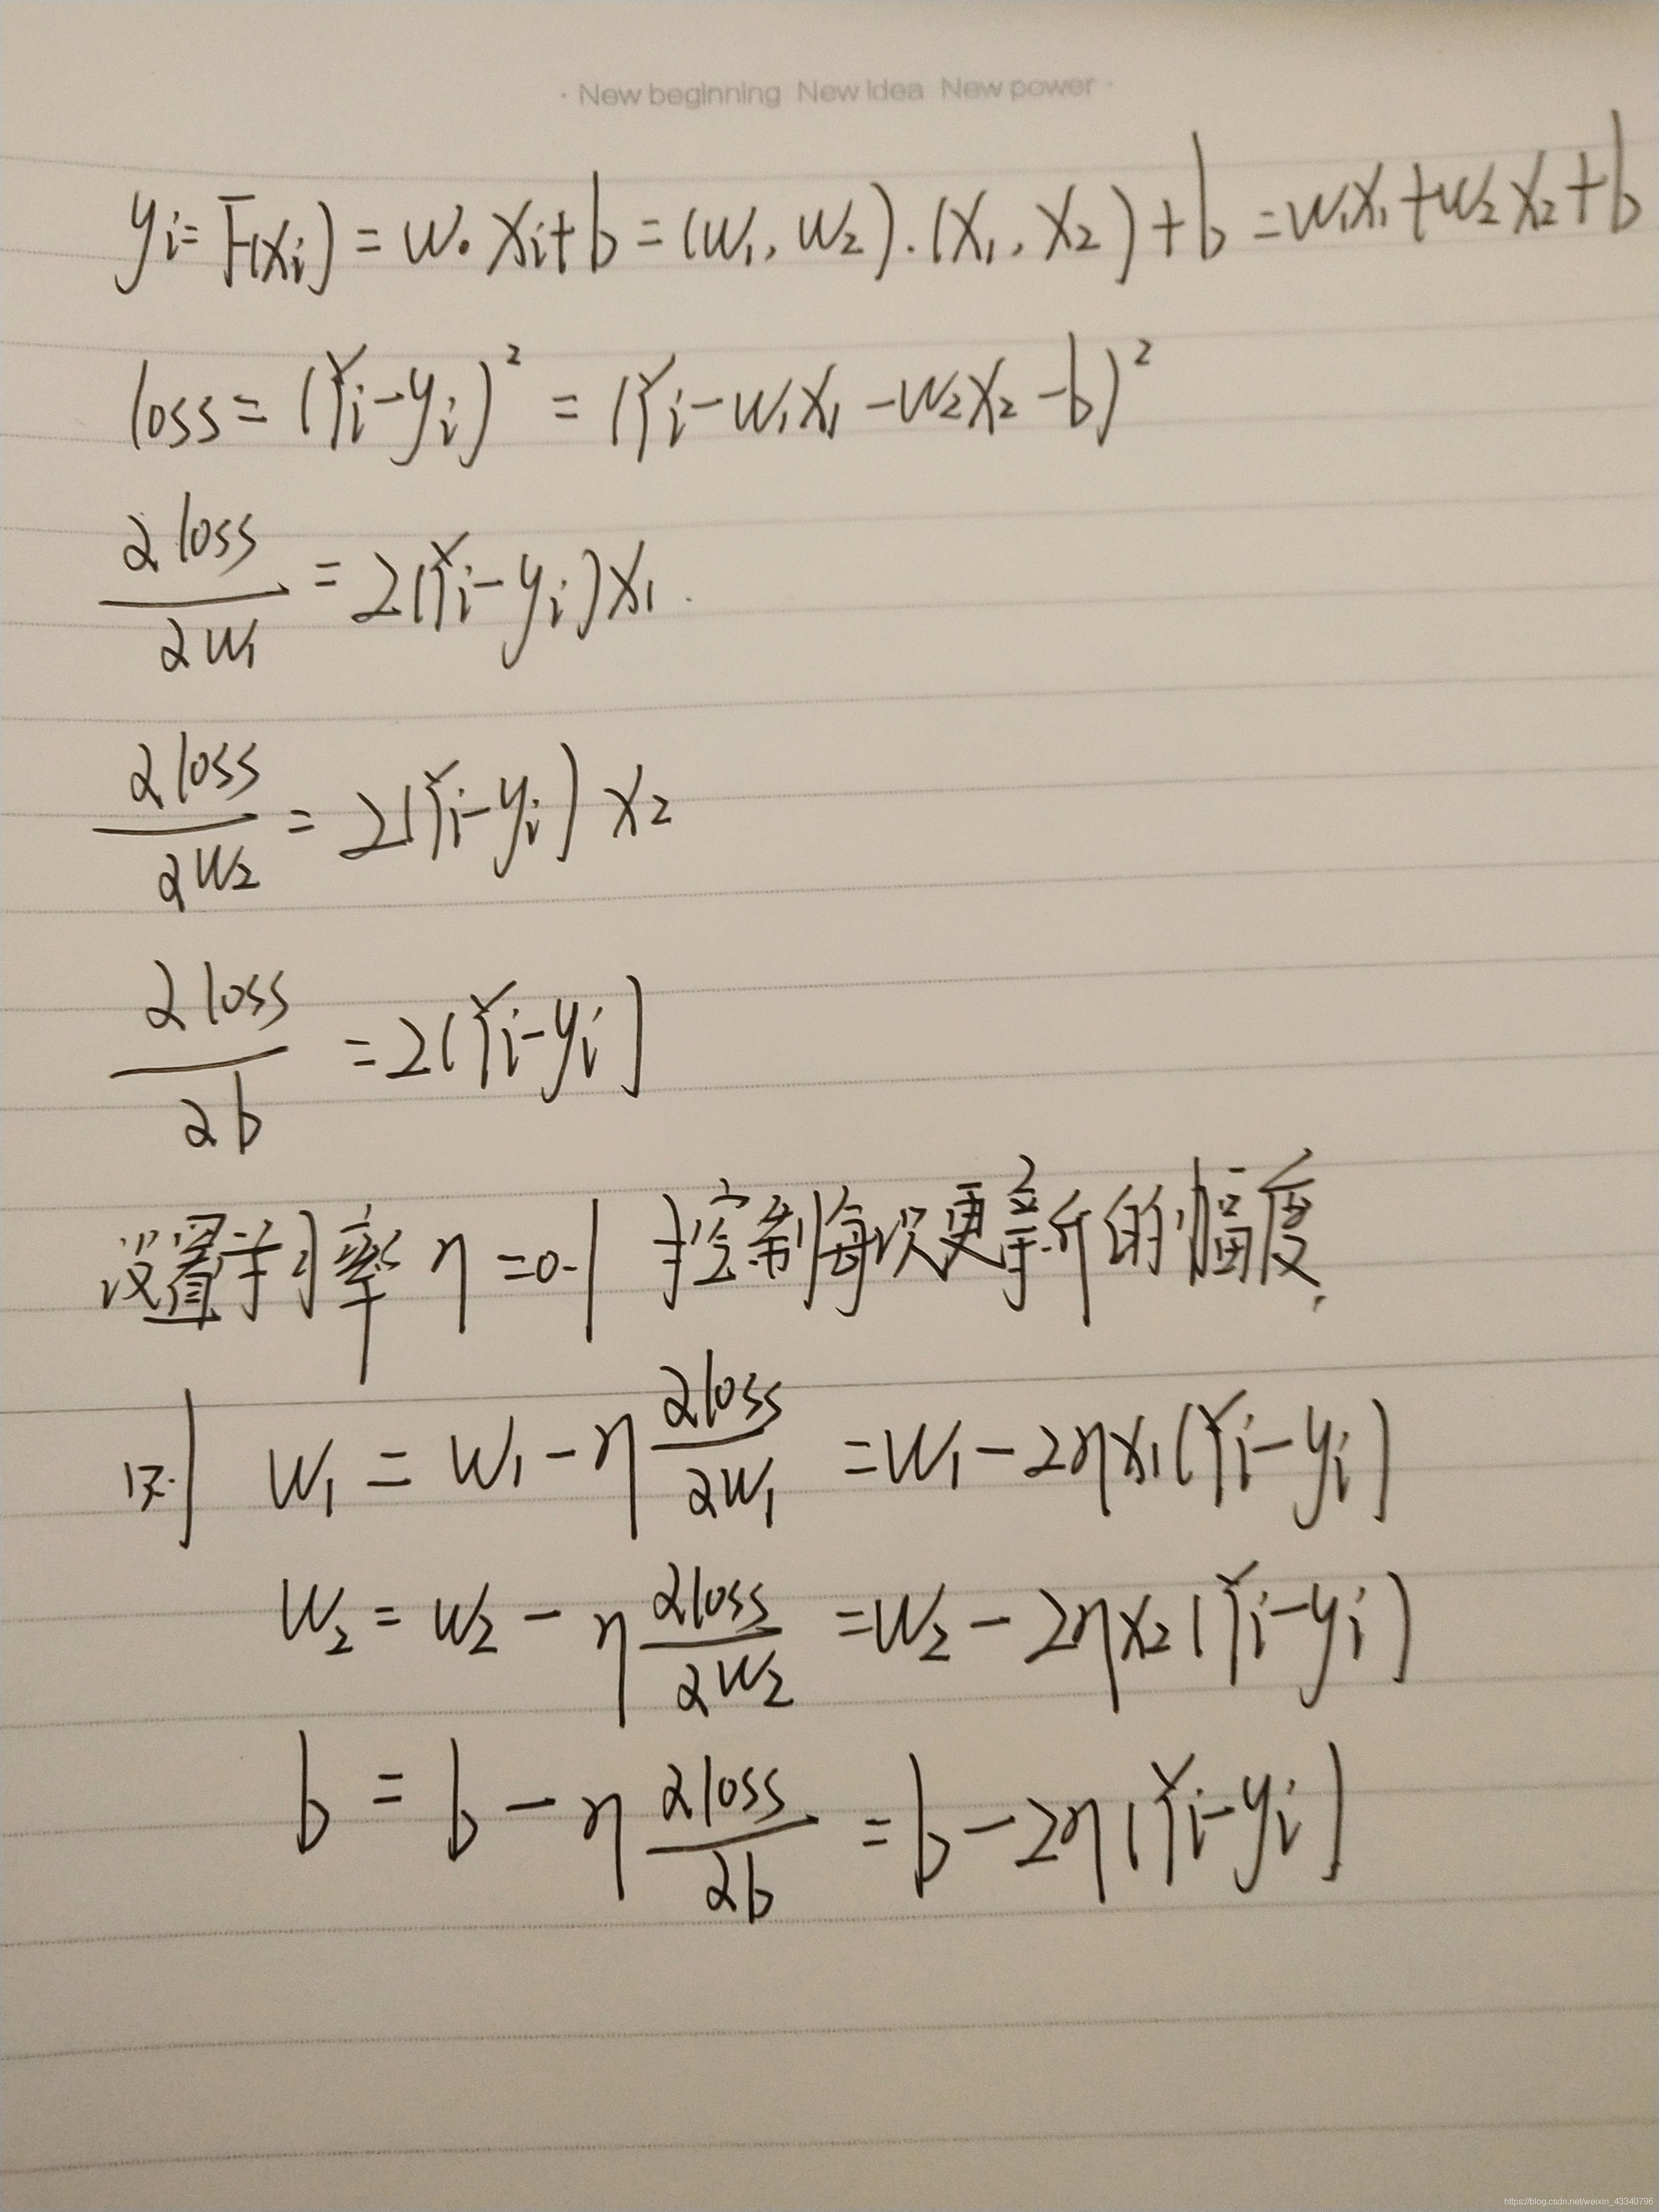 · New beginning New Idea New power ·
yi = F(xi) = w · xi + b = (w₁, w₂) · (x₁, x₂) + b = w₁x₁ + w₂x₂ + b
loss = (Yi - yi)² = (Yi - w₁x₁ - w₂x₂ - b)²
∂loss/∂w₁ = 2(Yi - yi)x₁.
∂loss/∂w₂ = 2(Yi - yi)x₂
∂loss/∂b = 2(Yi - yi)
设置学习率 η = 0.1 控制每次更新的幅度.
则 w₁ = w₁ - η ∂loss/∂w₁ = w₁ - 2ηx₁(Yi - yi)
w₂ = w₂ - η ∂loss/∂w₂ = w₂ - 2ηx₂(Yi - yi)
b = b - η ∂loss/∂b = b - 2η(Yi - yi)
https://blog.csdn.net/weixin_43340796